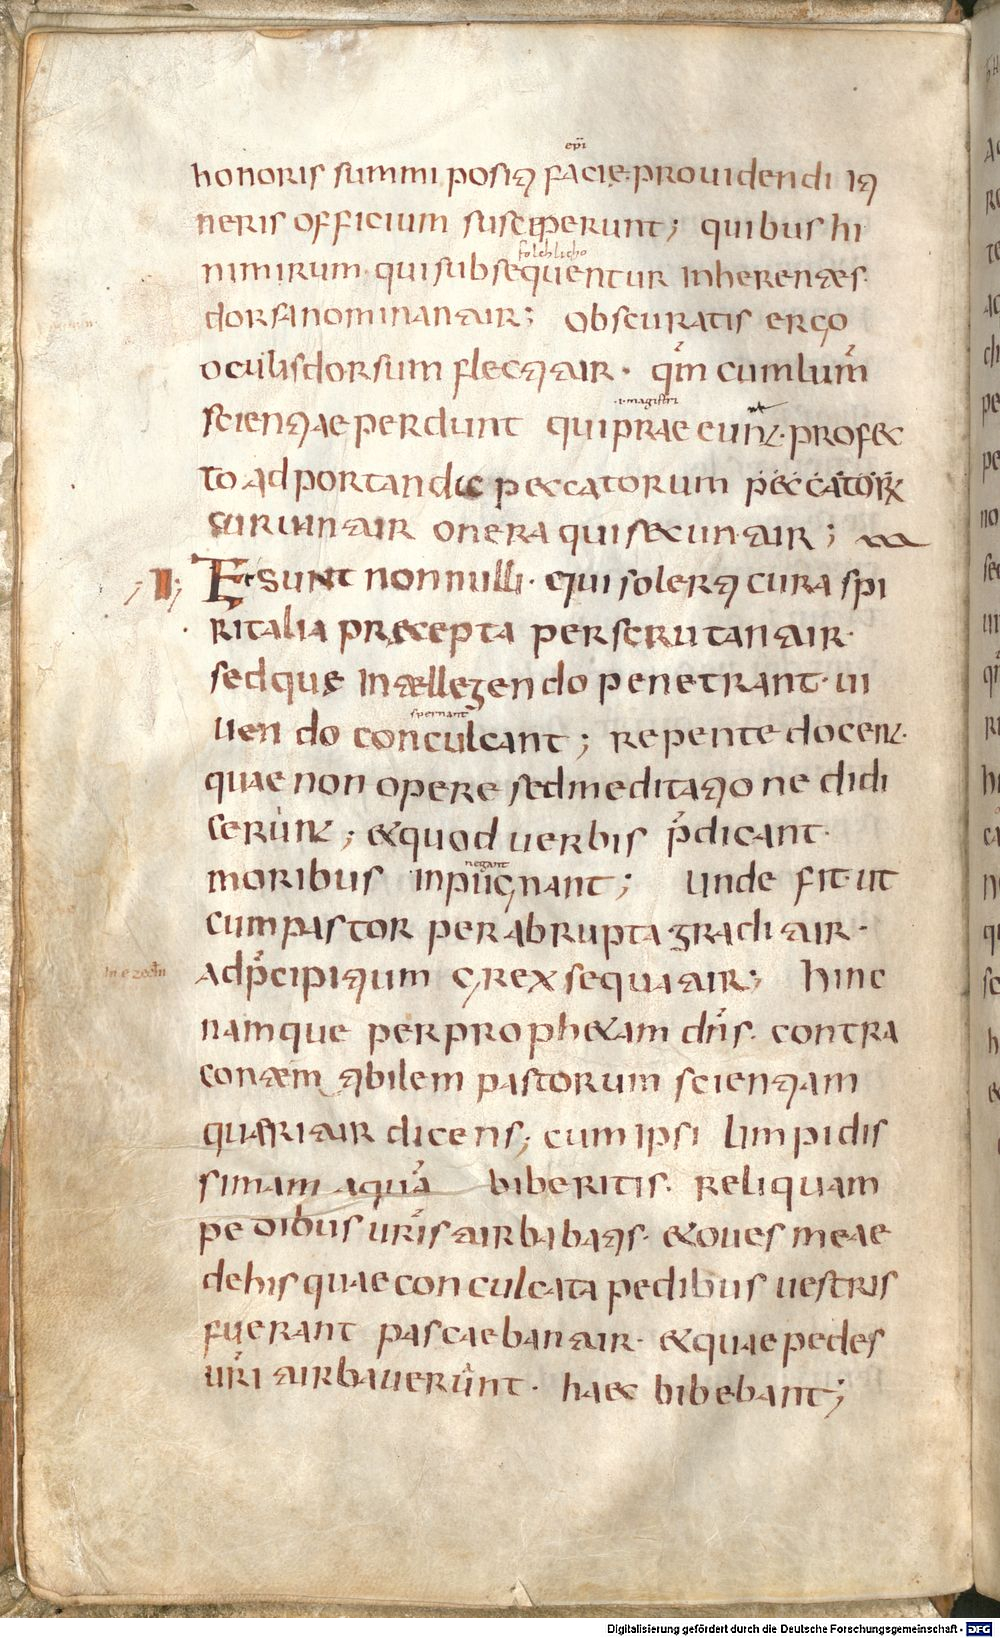 ep̅i
honoris summi positi facie·prouidendi iti
neris officium susceperunt; quibus hi
folchlicho
nimirum· qui subsequentur inherentes·
dorsa nominantur; obscuratis ergo
oculis dorsum flectitur· qm̅ cum lum̅
·i·magistri
scientiae perdunt qui prae eunt· profec
to ad portanda peccatorum peccatorꝝ
suruantur onera qui secuntur;
;II; Et sunt nonnulli· qui solerti cura spi
ritalia precepta perscrutantur·
sed quę intellegendo penetrant· ui
spernant
uendo conculcant; repente docent·
quae non opere sed meditatione didi
cerunt; & quod uerbis p̅dicant·
negant
moribus inpugnant; unde fit· ut
cum pastor per abrupta graditur·
In ezechi
ad p̅cipitium grex sequatur; hinc
namque per proph&am dn̅s· contra
contem̅tibilem pastorum scientiam
queritur dicens; cum ipsi limpidis
simam aqua̅ biberitis· reliquam
pedibus ur̅is turbabatis· & oues meae
de his quae conculcata pedibus uestris
fuerant pascaebantur· & quae pedes
ur̅i turbauerunt· haec bibebant;
Digitalisierung gefördert durch die Deutsche Forschungsgemeinschaft - DFG